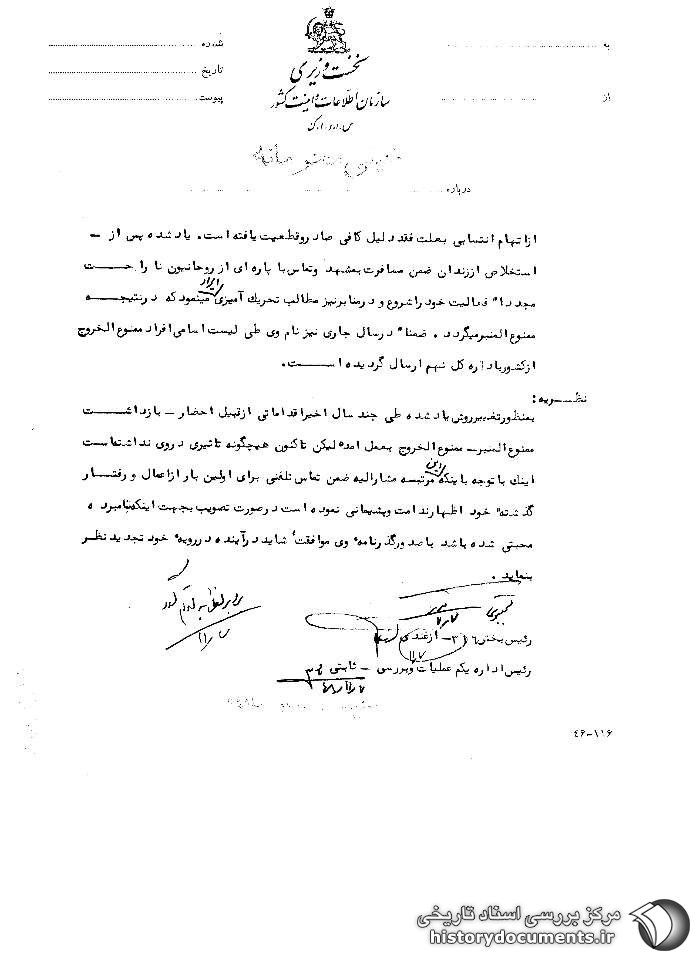 به
شماره
از
تاریخ
پیوست
نخست وزیری
سازمان اطلاعات و امنیت کشور
س.ا.و.ا.ک
درباره
ازاتهام انتسابی بعلت فقد دلیل کافی صادر وقطعیت یافته است. یادشده پس از –
استخلاص اززندان ضمن مسافرت بمشهد وتماس با پاره ای از روحانیون ناراحت
مجددا" فعالیت خود را شروع و در منابر نیز مطالب تحریک آمیزی ایراد مینمود که درنتیجه
ممنوع المنبر میگردد. ضمنا" درسال جاری نیز نام وی طی لیست اسامی افراد ممنوع الخروج
ازکشور باداره کل نهم ارسال گردیده است.
نظریه:
بمنظور تغییر روش یادشده طی چند سال اخیر اقداماتی از قبیل احضار – بازداشت
ممنوع المنبر – ممنوع الخروج بعمل امده لیکن تاکنون هیچگونه تاثیری در وی نداشته است
اینک با توجه باینکه این مرتبه مشارالیه ضمن تماس تلفنی برای اولین بار از اعمال و رفتار
گذشته خود اظهار ندامت وپشیمانی نموده است درصورت تصویب بجهت اینکه بنامبرده
محبتی شده باشد با صدور گذرنامه وی موافقت، شاید در آینده در رویه خود تجدید نظر
بنماید.
رئیس بخش ۳۱۶ – ازغندی
رئیس اداره یکم عملیات وبررسی – ثابتی
۴۶-۱۱۶
مرکز بررسی اسناد تاریخی
historydocuments.ir